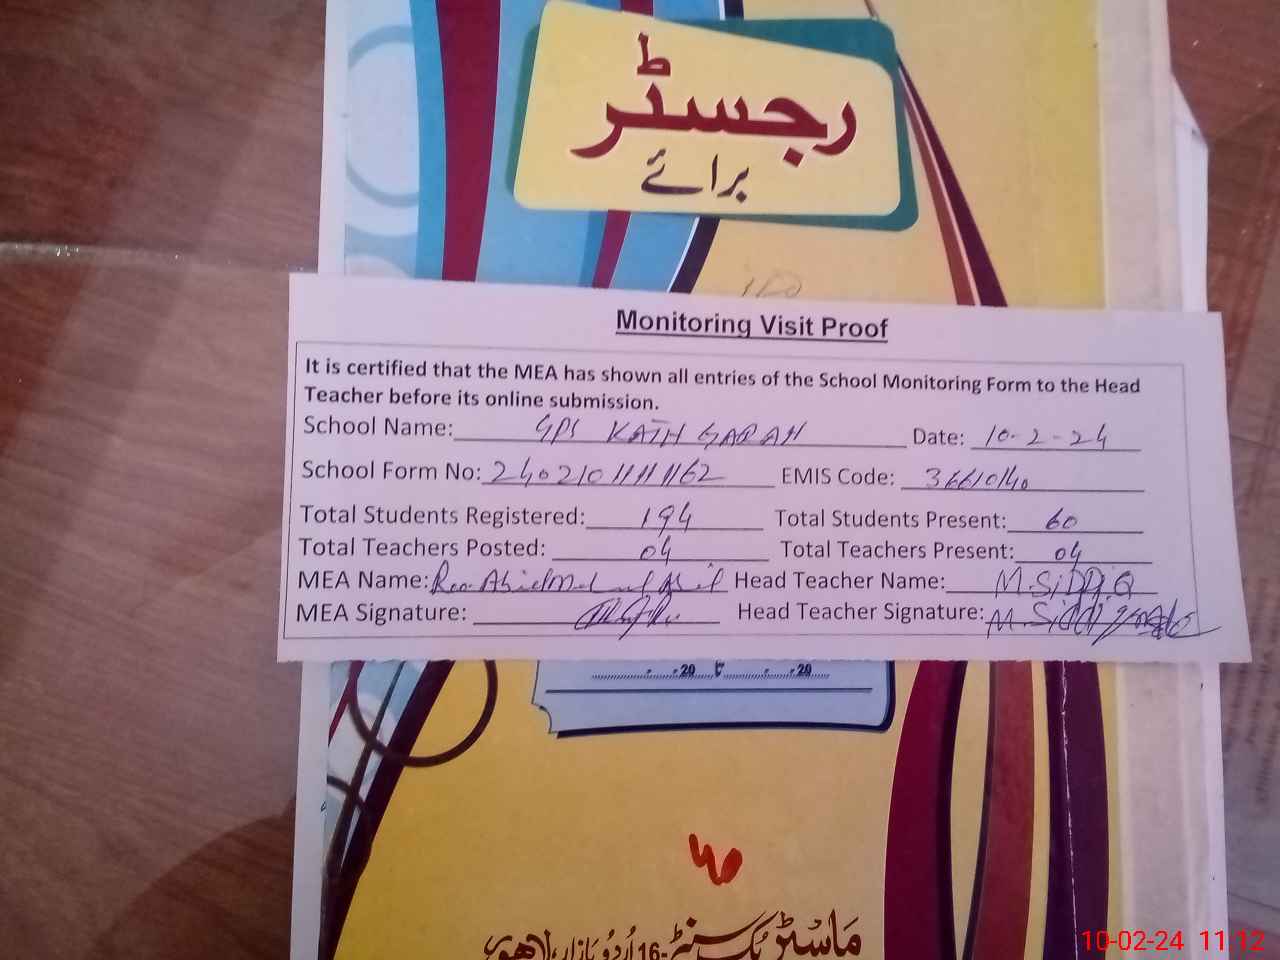 رجسٹر
برائے
Monitoring Visit Proof
It is certified that the MEA has shown all entries of the School Monitoring Form to the Head
Teacher before its online submission.
School Name: GPS KATH GARAH Date: 10-2-24
School Form No: EMIS Code: 36610140
Total Students Registered: 194 Total Students Present: 60
Total Teachers Posted: 04 Total Teachers Present: 04
MEA Name: Head Teacher Name: M.SiDDiQ
MEA Signature: Head Teacher Signature: M.Siddiq
20 تا 20
ماسٹر بک سنٹر-16 اُردو بازار، لاھور
10-02-24 11:12